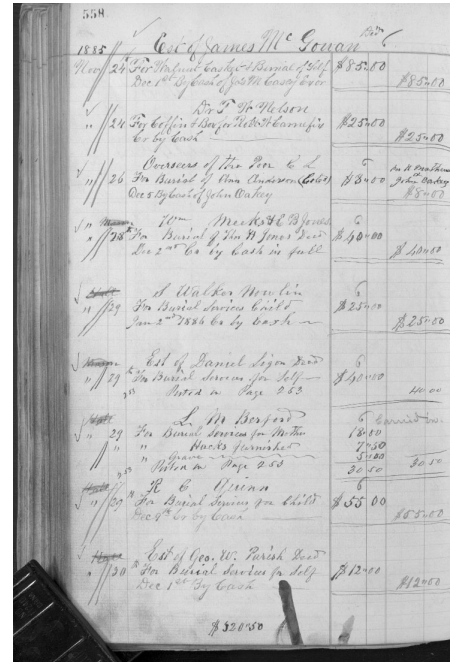 558
1885 Est of James Mc Gowan
Nov 24 For Walnut Casket & Burial of Self $85.00
Dec 1st By Cash of $85.00
Dr T W Nelson
" 24 For Coffin & $25.00
Cr by Cash $25.00
Overseers of the Poor C L
" 26 For Burial of Ann Anderson (Cold) $8.00 John Oakey
Dec 5 By Cash of John Oakey $8.00
Wm Meeks & E B Jones
" 28 For Burial of Thos H Jones Decd $40.00
Dec 2nd Cr by Cash in full $40.00
S Walker Nowlin
" 29 For Burial Services Child $25.00
Jan 2nd 1886 Cr by Cash $25.00
Est of Daniel Sigon Decd
" 29 For Burial Services for Self $40.00
253 Posted on Page 253 40 00
L M Berford Carried on
" 29 For Burial Services for Mother 18.00
" " Hacks furnished 7.50
" Grave 5.00
253 Posted on Page 253 30 50 30 50
R C Quinn
" 29 For Burial Services for Child $55 00
Dec 9th Cr by Cash $55.00
Est of Geo. W. Parish Decd
" 30 For Burial Services for Self $12.00
Dec 1st By Cash $12.00
$320.50